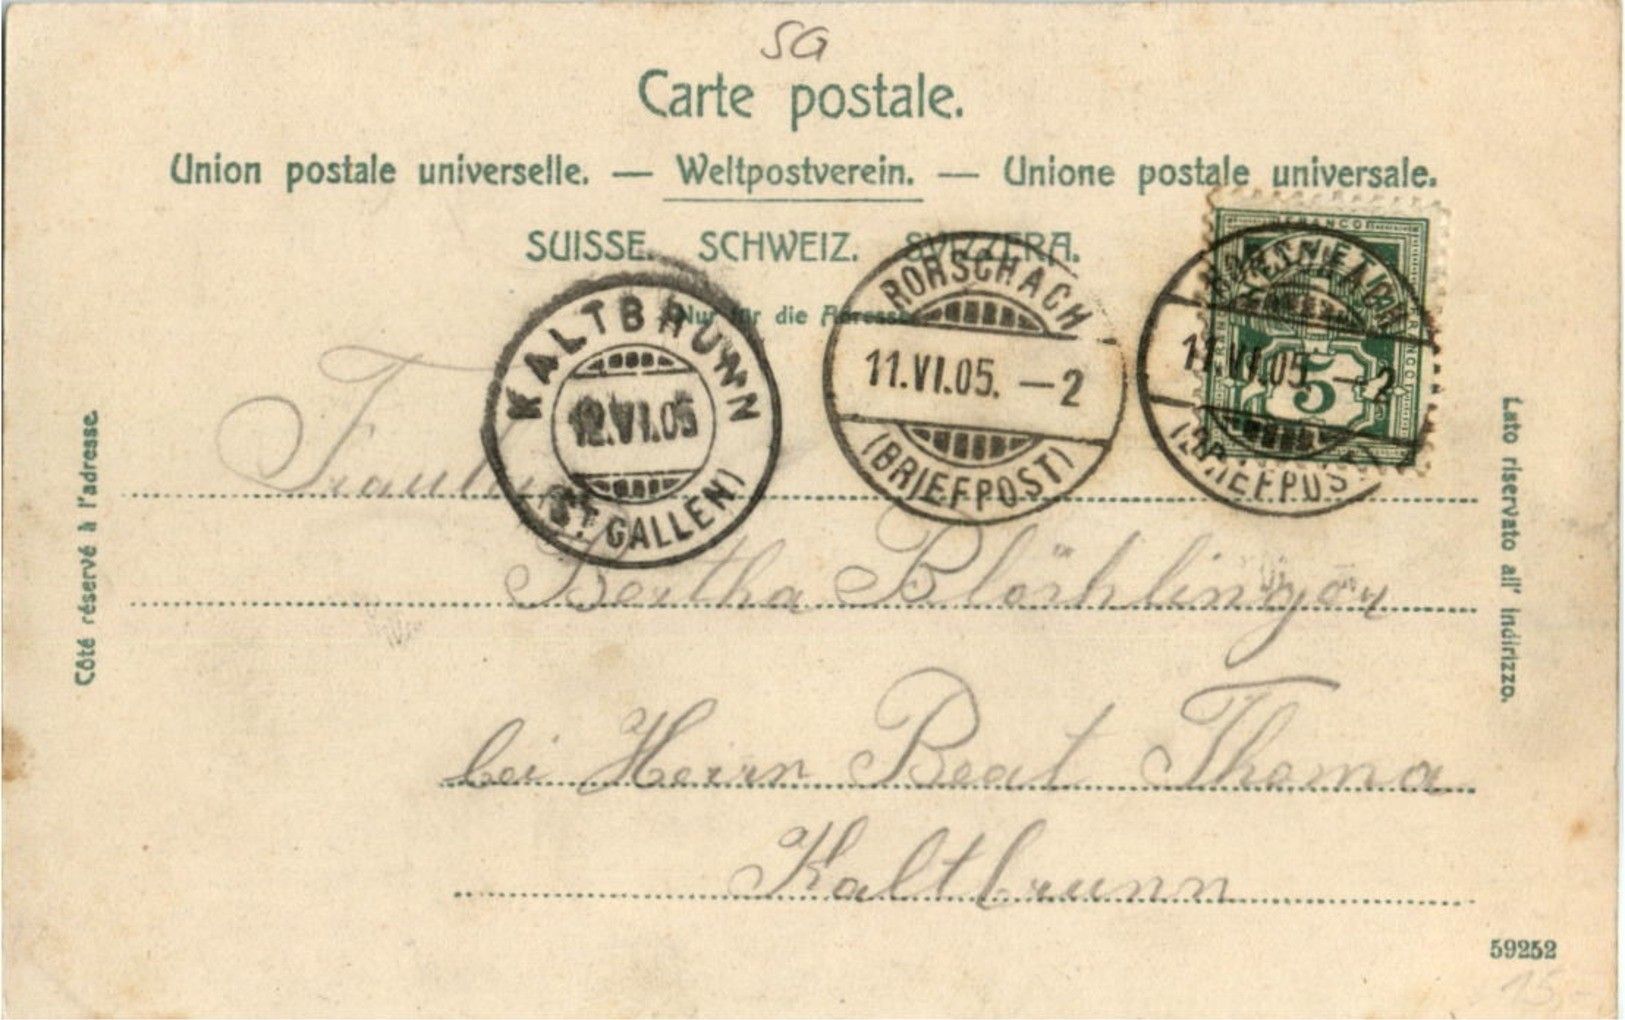 SG
Carte postale.
Union postale universelle. — Weltpostverein. — Unione postale universale.
SUISSE. SCHWEIZ. SVIZZERA.
Nur für die Adresse
KALTBRUNN
12.VI.05
(ST. GALLEN)
RORSCHACH
11.VI.05. – 2
(BRIEFPOST)
FRANCO
5
11.VI.05. – 2
(BRIEFPOST)
Côté réservé à l'adresse.
Lato riservato all' indirizzo.
Bertha Blöchlinger
bei Herrn Beat Thoma
Kaltbrunn
59252
15,-